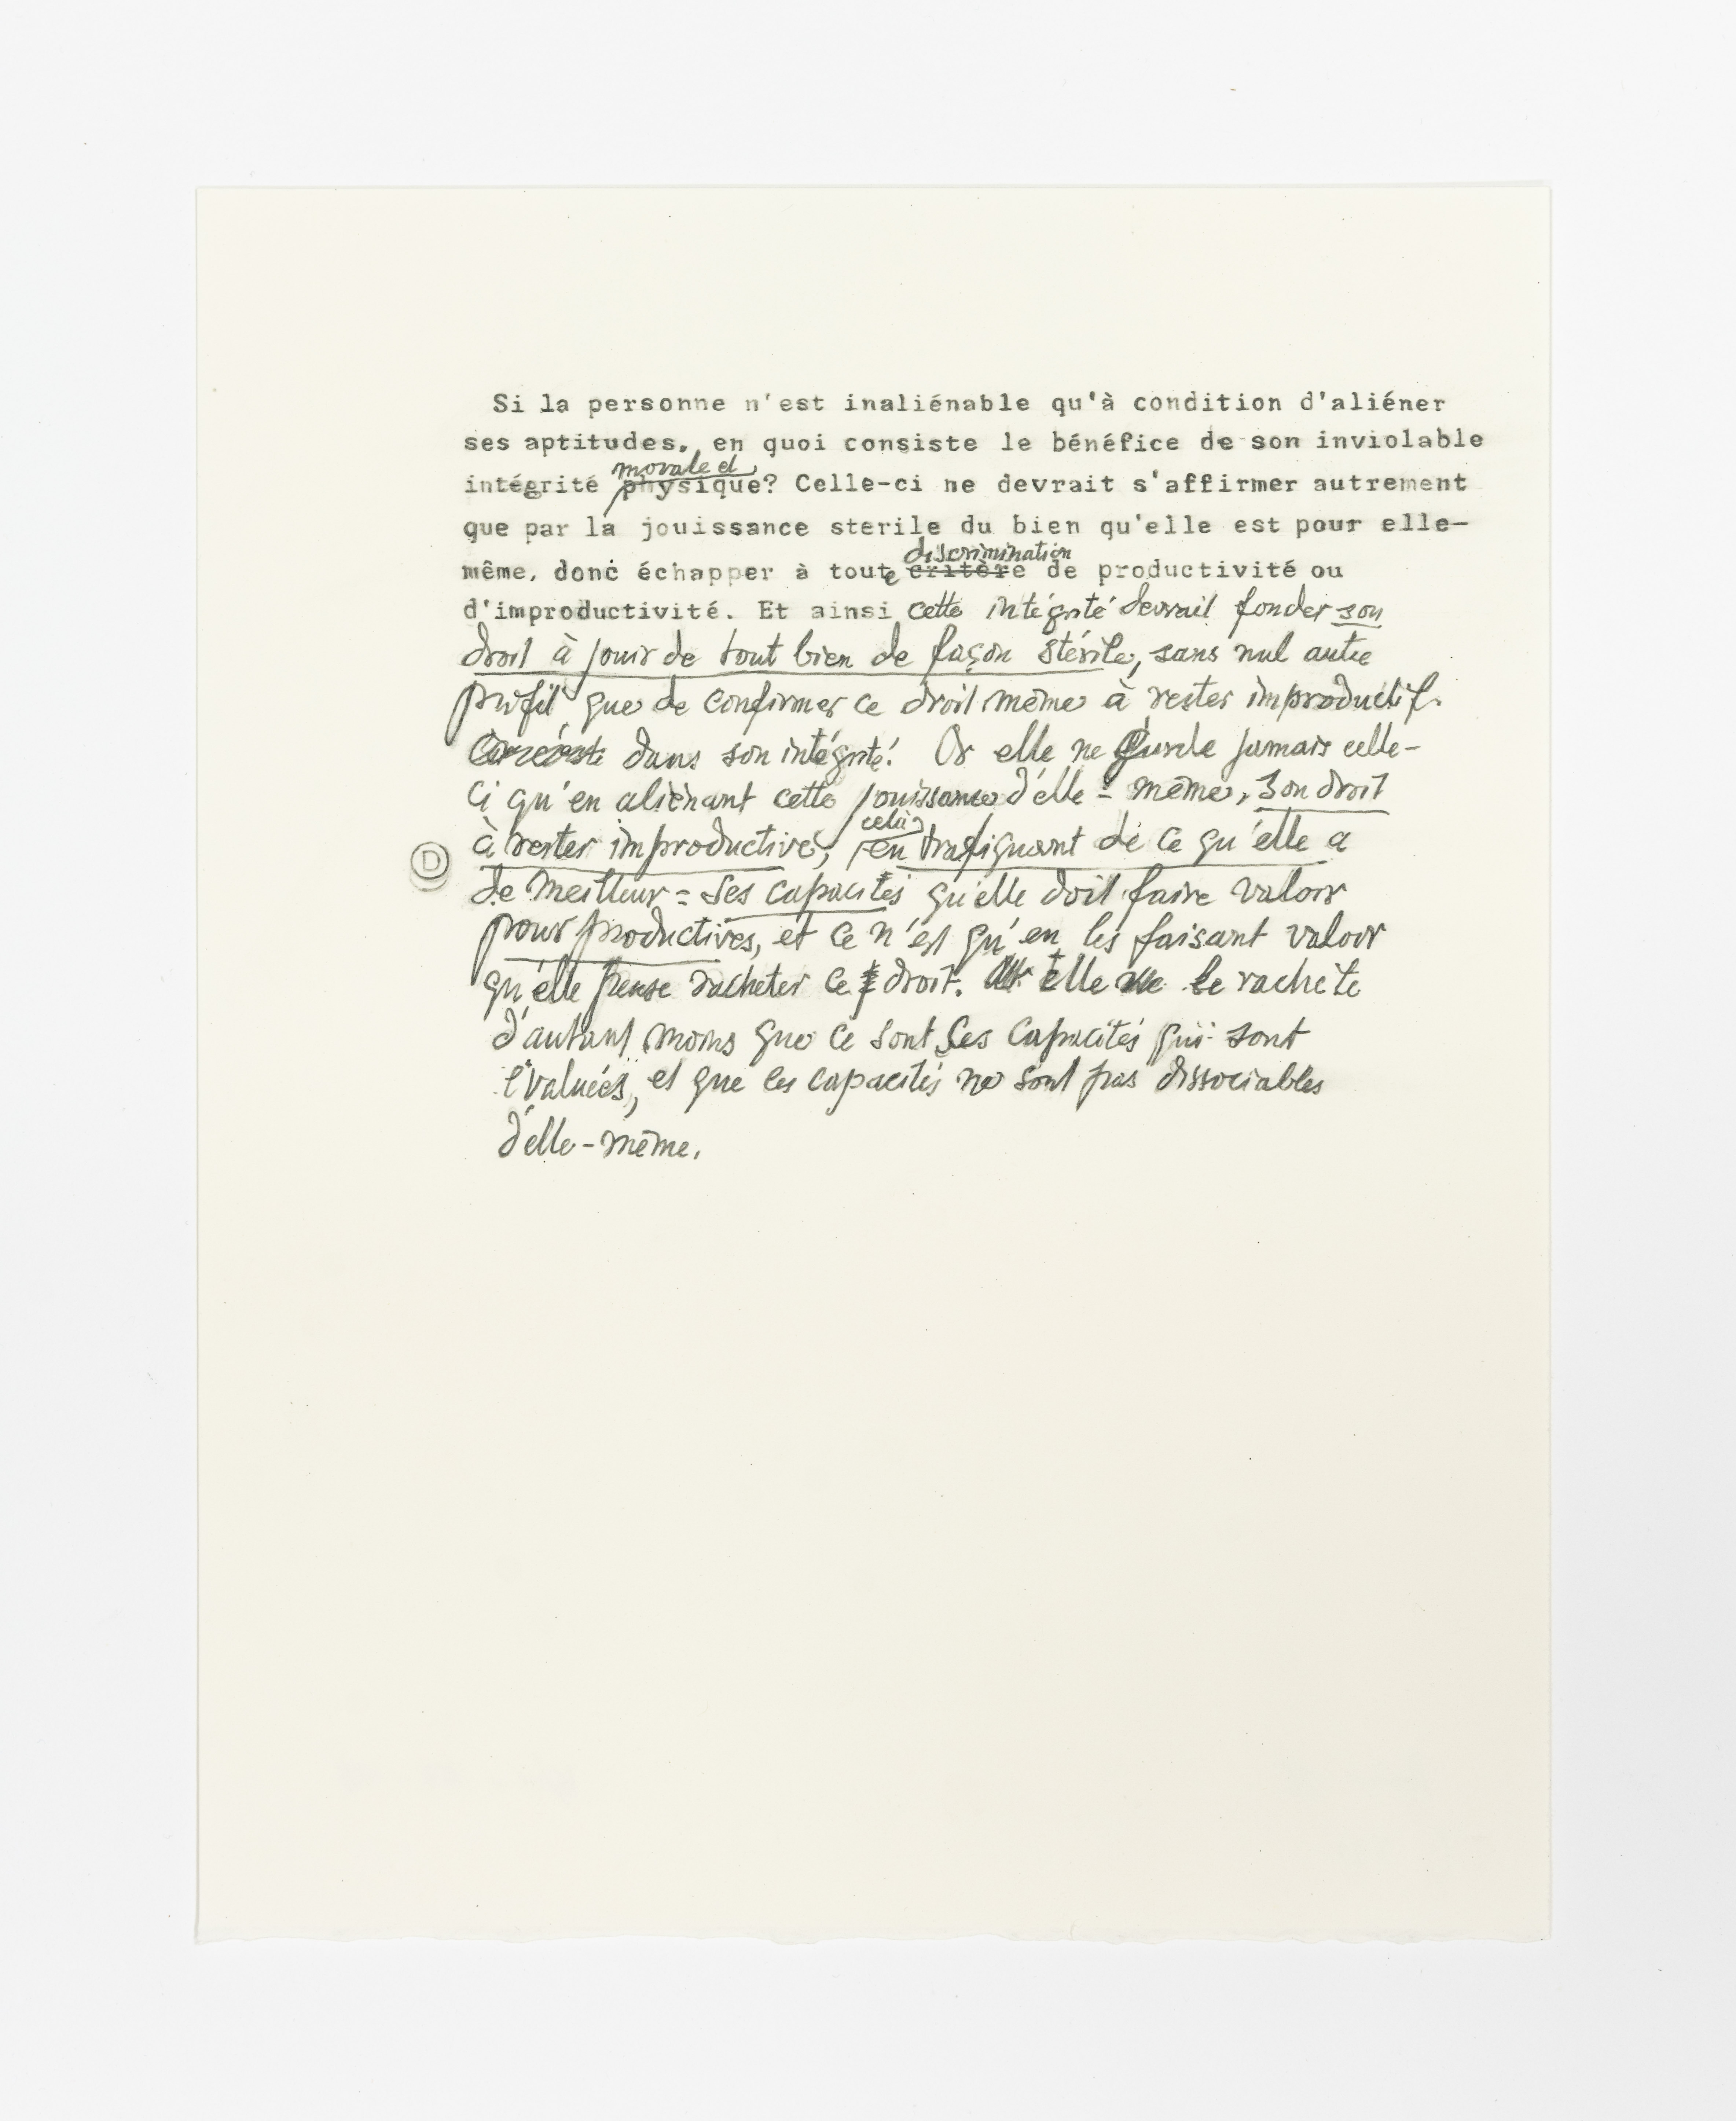 Si la personne n'est inaliénable qu'à condition d'aliéner
ses aptitudes, en quoi consiste le bénéfice de son inviolable
morale et
intégrité physique? Celle-ci ne devrait s'affirmer autrement
que par la jouissance sterile du bien qu'elle est pour elle-
discrimination
même, donc échapper à toute critère de productivité ou
d'improductivité. Et ainsi cette intégrité devrait fonder son
droit à jouir de tout bien de façon stérile, sans nul autre
profit que de confirmer ce droit même à rester improductif.
dans son intégrité! Or elle ne garde jamais celle-
ci qu'en aliénant cette jouissance d'elle-même, son droit
cela
à rester improductive, en trafiquant de ce qu'elle a
D
de meilleur = ses capacités qu'elle doit faire valoir
pour productives, et ce n'est qu'en les faisant valoir
qu'elle pense racheter ce droit. elle le rachète
d'autant moins que ce sont ses capacités qui sont
évaluées, et que les capacités ne sont pas dissociables
d'elle-même.